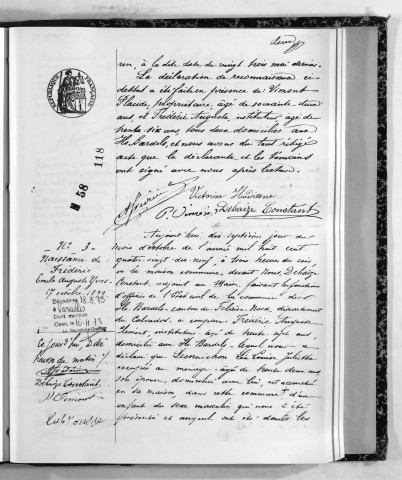 un, à la dite date du vingt trois mai dernier.
La déclaration de reconnaissance ci-
dessus a été faite en présence de Vimont
Placide, propriétaire, âgé de soixante-deux
ans, et Frédéric Auguste, instituteur, âgé de
trente six ans, tous deux domiciliés aux
Îles Bardels, et nous avons du tout rédigé
acte que la déclarante et les témoins
ont signé avec nous après lecture.
REPUBLIQUE FRANÇAISE
118
58
P. Vimont Debaize Constant
N° 3
Naissance de
Frédéric
Emile Auguste Yves
17 octobre 1899
Aujourd'hui dix-septième jour du
mois d'octobre de l'année mil huit cent
quatre-vingt dix neuf, à trois heures du soir
en la maison commune, devant Nous, Debaize
Constant, adjoint au Maire, faisant les fonctions
d'officier de l'État civil de la commune des
Îles Bardels, canton de Falaise Nord, département
du Calvados, a comparu Frédéric Auguste
instituteur, âgé de trente six ans,
domicilié aux Îles Bardels, lequel nous a
déclaré que Louise Juliette
occupée au ménage, âgée de trente deux ans
son épouse, domiciliée avec lui, est accouchée
en sa maison, dans cette commune, d'un
enfant du sexe masculin qui nous a été
présenté et auquel ont été donnés les
Ce jourd'hui
du matin
Debaize Constant
P. Vimont